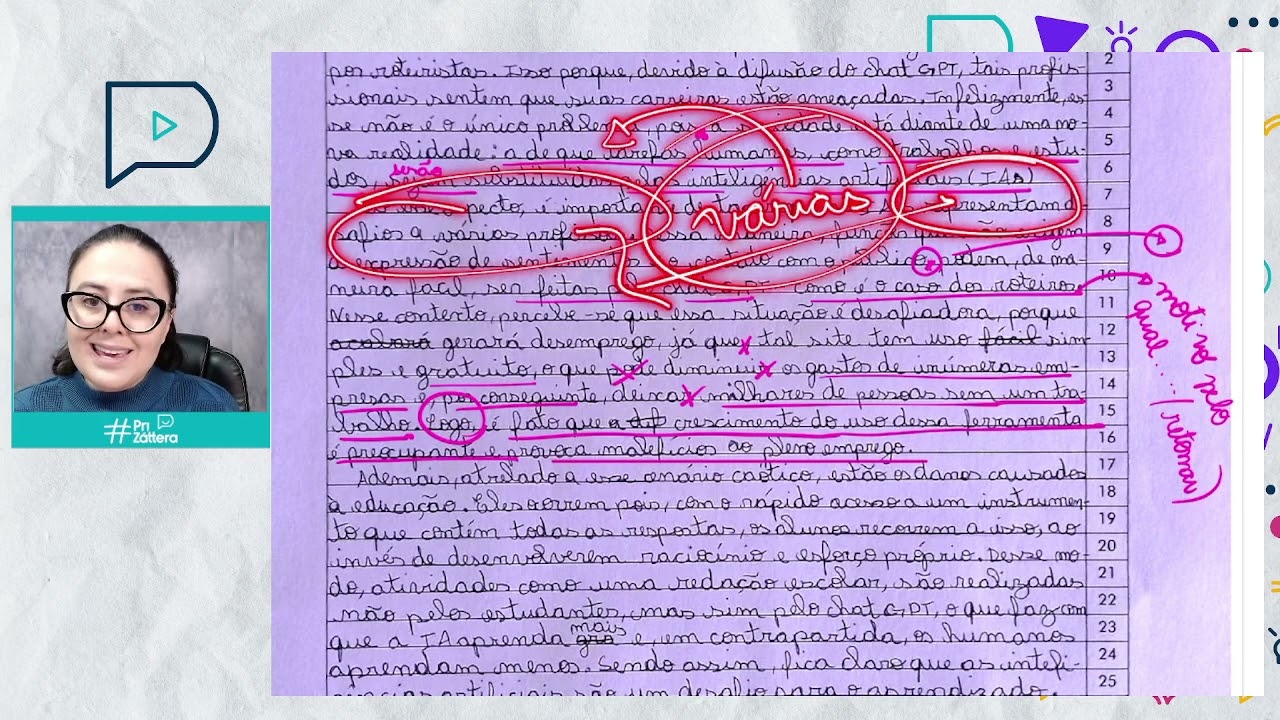 por roteiristas. Isso porque, devido à difusão do Chat GPT, tais profis-
sionais sentem que suas carreiras estão ameaçadas. Infelizmente, es-
se não é o único problema, pois a sociedade está diante de uma no-
va realidade: a de que tarefas humanas, como trabalhos e estu-
serão
dos, substituídas inteligências artificiais (IAs)
várias
pecto, é apresentam de-
safios a vários
a expressão de sentimentos contato com o público, podem, de ma-
neira geral, ser feitas pelo chat GPT, como é o caso dos roteiros.
Nesse contexto, percebe-se que essa situação é desafiadora, porque
acabará gerará desemprego, já que tal site tem uso fácil sim-
ples e gratuito, o que diminuir os gastos de inúmeras em-
presas e, por conseguinte, deixar milhares de pessoas sem um tra-
balho. Logo, é fato que crescimento do uso dessa ferramenta
é preocupante e provoca malefícios ao pleno emprego.
Ademais, atrelado a esse cenário caótico, estão os danos causados
à educação. Eles ocorrem pois, com o rápido acesso a um instrumen-
to que contém todas as respostas, os alunos recorrem a isso, ao
invés de desenvolverem raciocínio e esforço próprio. Desse mo-
do, atividades como uma redação escolar, são realizadas
não pelos estudantes, mas sim pelo chat GPT, o que faz com
mais
que a IA aprenda e, em contrapartida, os humanos
aprendam menos. Sendo assim, fica claro que as inteli-
gências artificiais são um desafio para o aprendizado.
2
3
4
5
6
7
8
9
10
11
12
13
14
15
16
17
18
19
20
21
22
23
24
25
motivo pelo
qual..... (retomar)
#Pri
Záttera